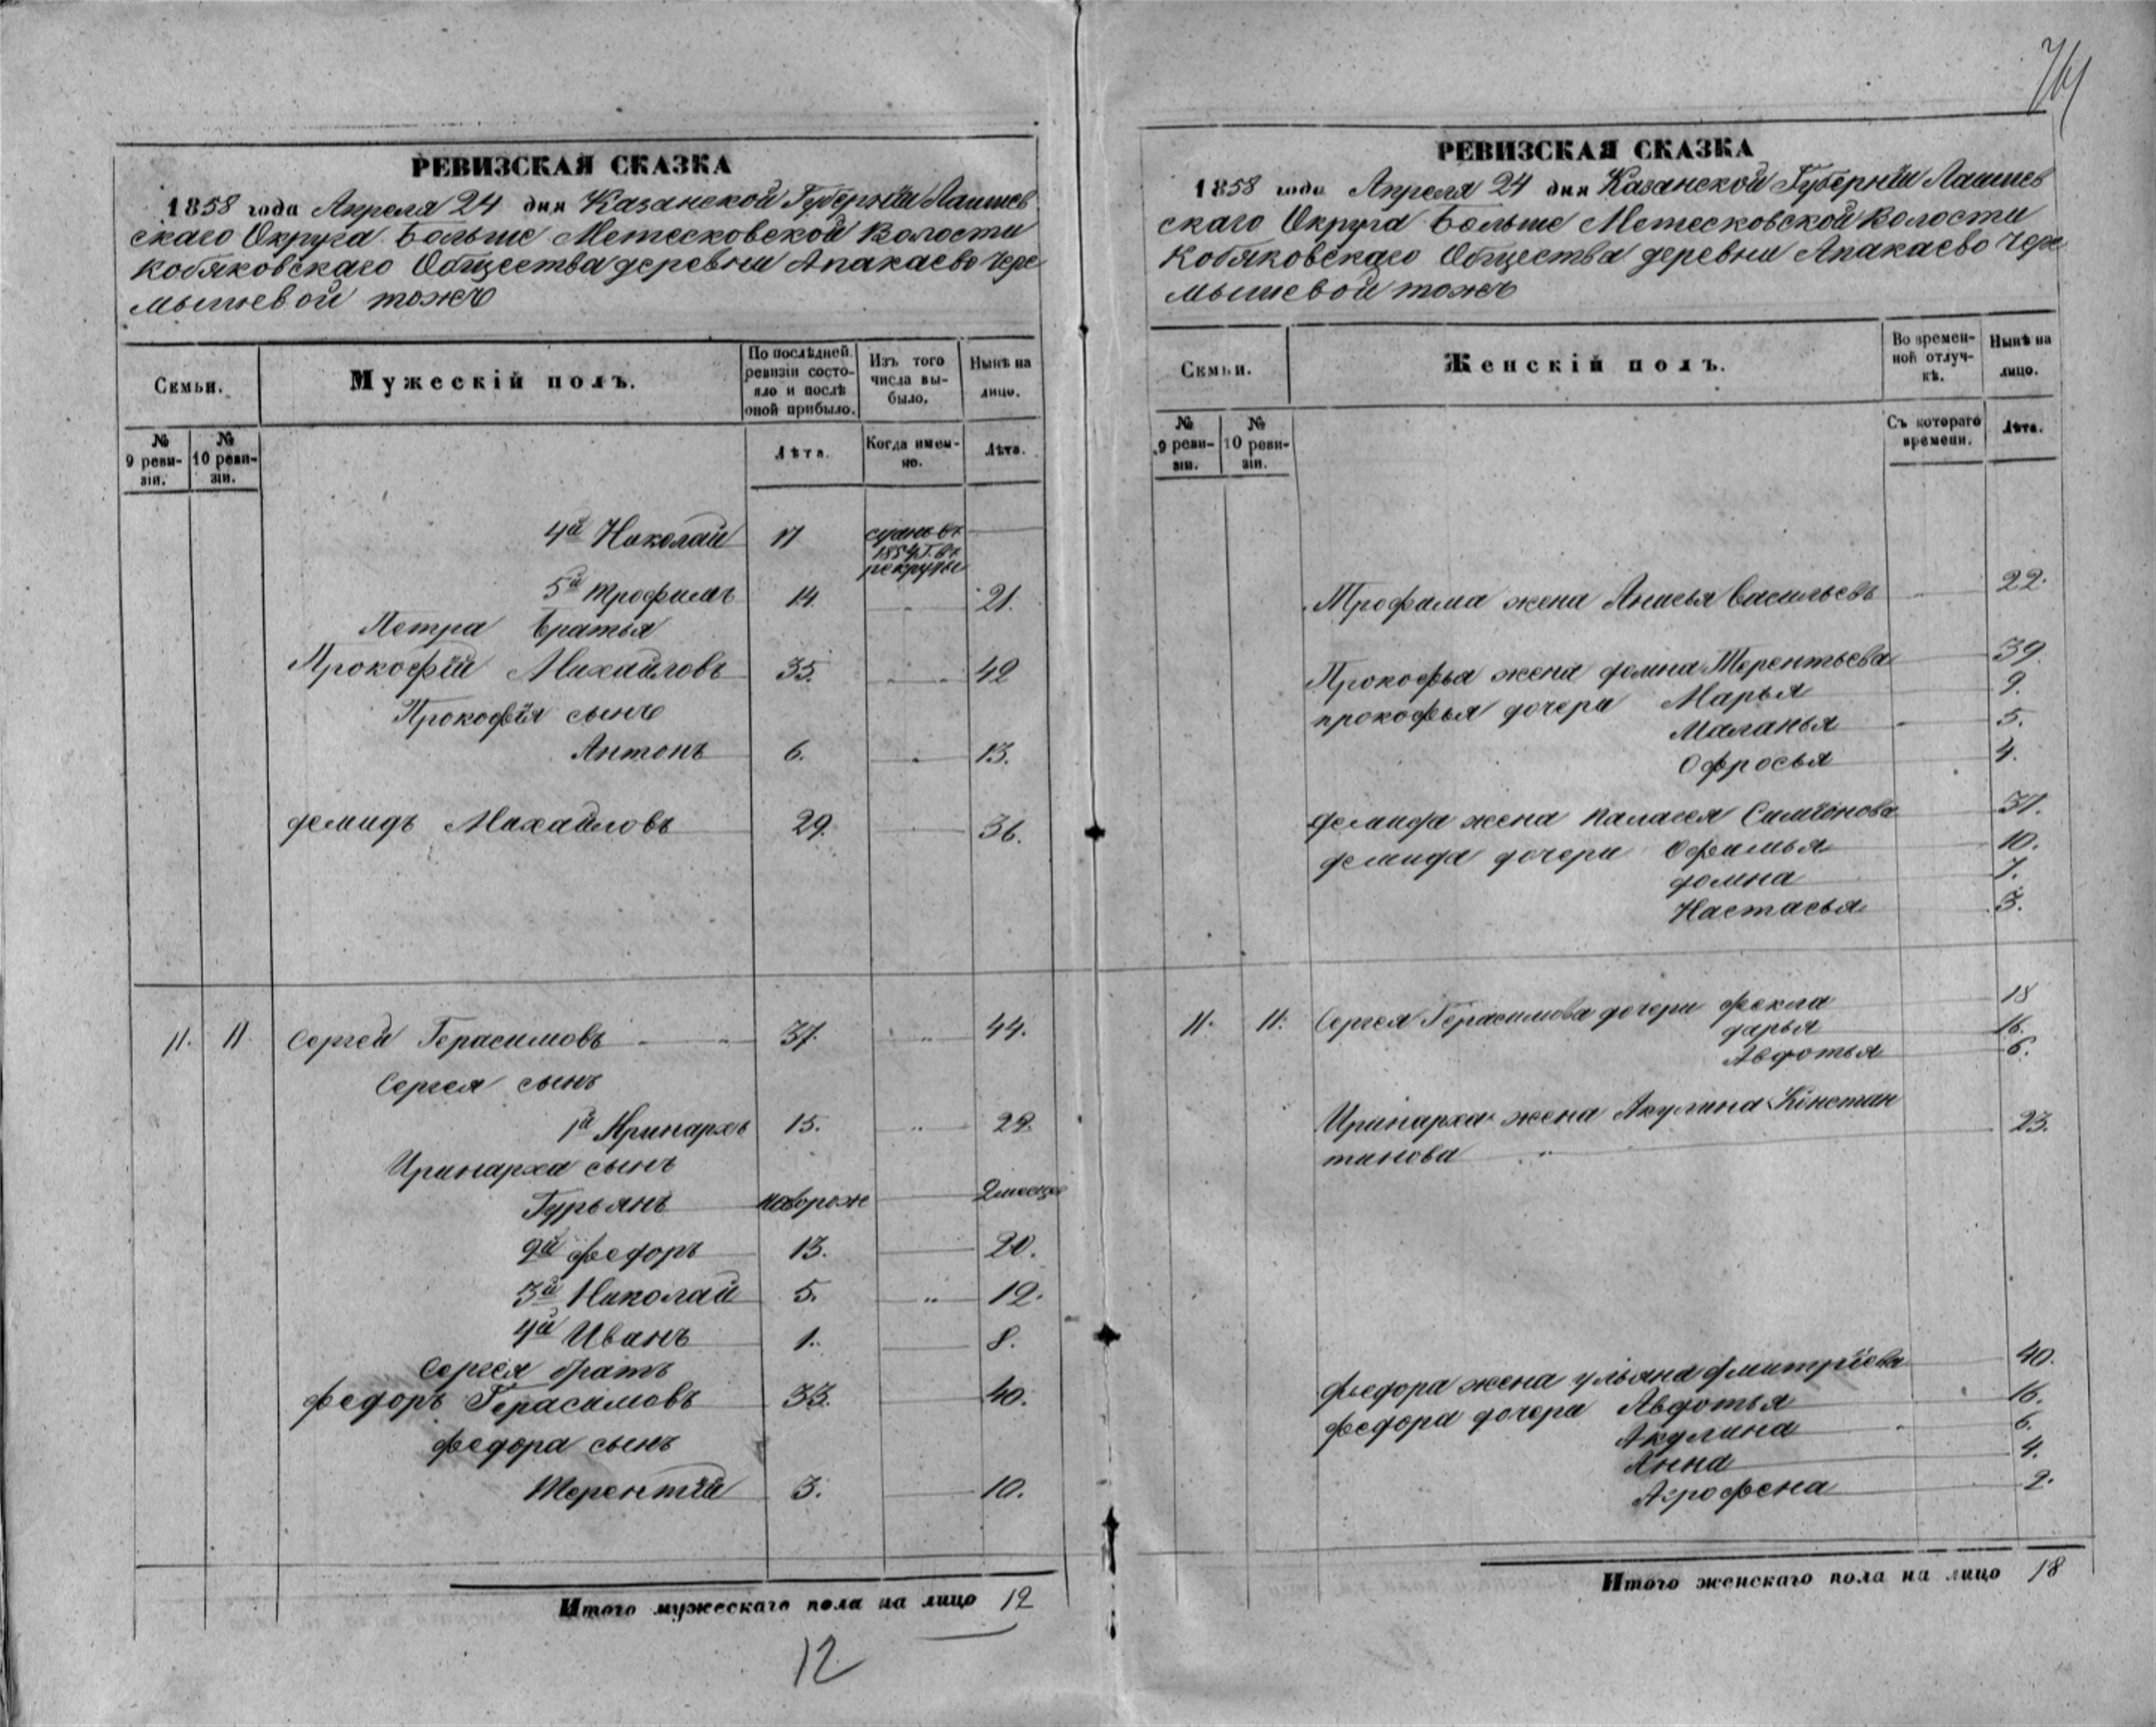 РЕВИЗСКАЯ СКАЗКА
1858 года Апреля 24 дня Казанской Губерніи Лаишев
скаго Округа Больше Метесковской Волости
Кобяковскаго Общества деревни Апакаево Чере
мышевой тожъ
Семьи.
Мужескій полъ.
По послѣдней ревизіи состояло и послѣ оной прибыло.
Изъ того числа выбыло.
Нынѣ на лицо.
№ 9 ревизіи.
№ 10 ревизіи.
Лѣта.
Когда именно.
Лѣта.
4й Николай 17 сданъ въ
1854 г. въ
рекруты
5й Трофимъ 14. 21.
Петра братья
Прокофій Михайловъ 35. 42
Прокофія сынъ
Антонъ 6. 13.
Демидъ Михайловъ 29. 36.
11. 11 Сергей Герасимовъ 37. 44.
Сергея сынъ
1й Иринархъ 15. 22.
Иринарха сынъ
Гурьянъ новорож 2 месеца
2й Федоръ 13. 20.
3й Николай 5. 12.
4й Иванъ 1. 8.
Сергея братъ
Федоръ Герасимовъ 33. 40.
Федора сынъ
Терентій 3. 10.
Итого мужескаго пола на лицо 12
12
РЕВИЗСКАЯ СКАЗКА
1858 года Апреля 24 дня Казанской Губерніи Лаишев
скаго Округа Больше Метесковской Волости
Кобяковскаго Общества деревни Апакаево Чере
мышевой тожъ
Семьи.
Женскій полъ.
Во временной отлучкѣ.
Нынѣ на лицо.
№ 9 ревизіи.
№ 10 ревизіи.
Съ котораго времени.
Лѣта.
Трофима жена Анисья Васильевъ 22.
Прокофья жена Домна Терентьева 39.
Прокофья дочери Марья 9.
Маланья 5.
Офросья 4.
Демида жена Палагея Симіонова 37.
Демида дочери Офимья 10.
Домна 7.
Настасья 3.
11. 11. Сергея Герасимова дочери Фекла 18
Дарья 16.
Авдотья 6.
Иринарха жена Акулина Констан
тинова 23.
Федора жена Ульяна Дмитріева 40.
Федора дочери Авдотья 16.
Акулина 6.
Анна 4.
Агрофена 2.
Итого женскаго пола на лицо 18